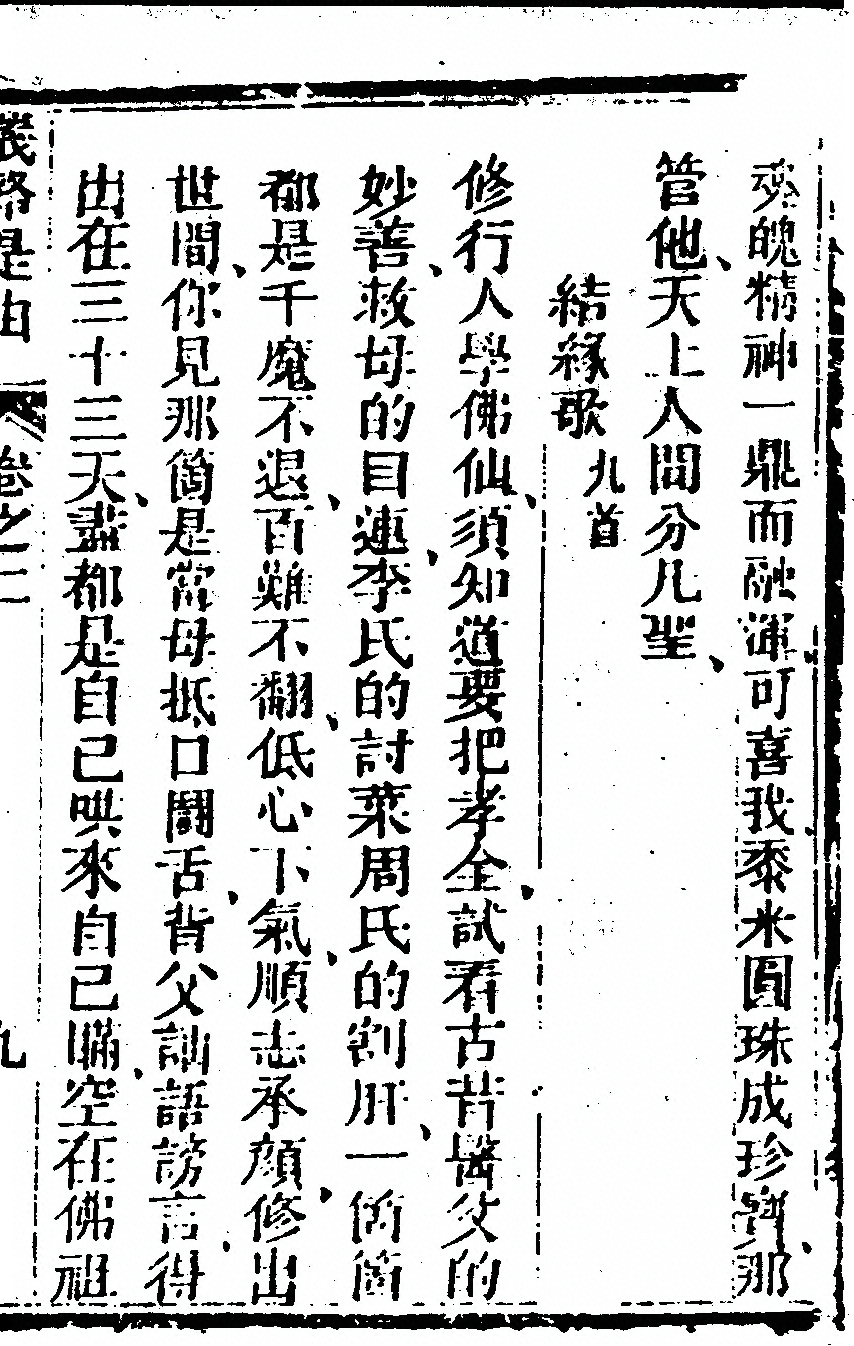 魂魄精神一鼎而融渾可喜我黍米圓珠成珍寶那
管他天上人間分凡聖
結緣歌 九首
修行人學佛仙須知道要把孝全試看古昔醫父的
妙善救母的目蓮李氏的討藥周氏的割肝一箇箇
都是千魔不退百難不翻低心下氣順志承顏修出
世間你見那箇是當母抵口鬪舌背父訕語謗言得
出在三十三天盡都是自己哄來自己瞞空在佛祖
卷之二 九